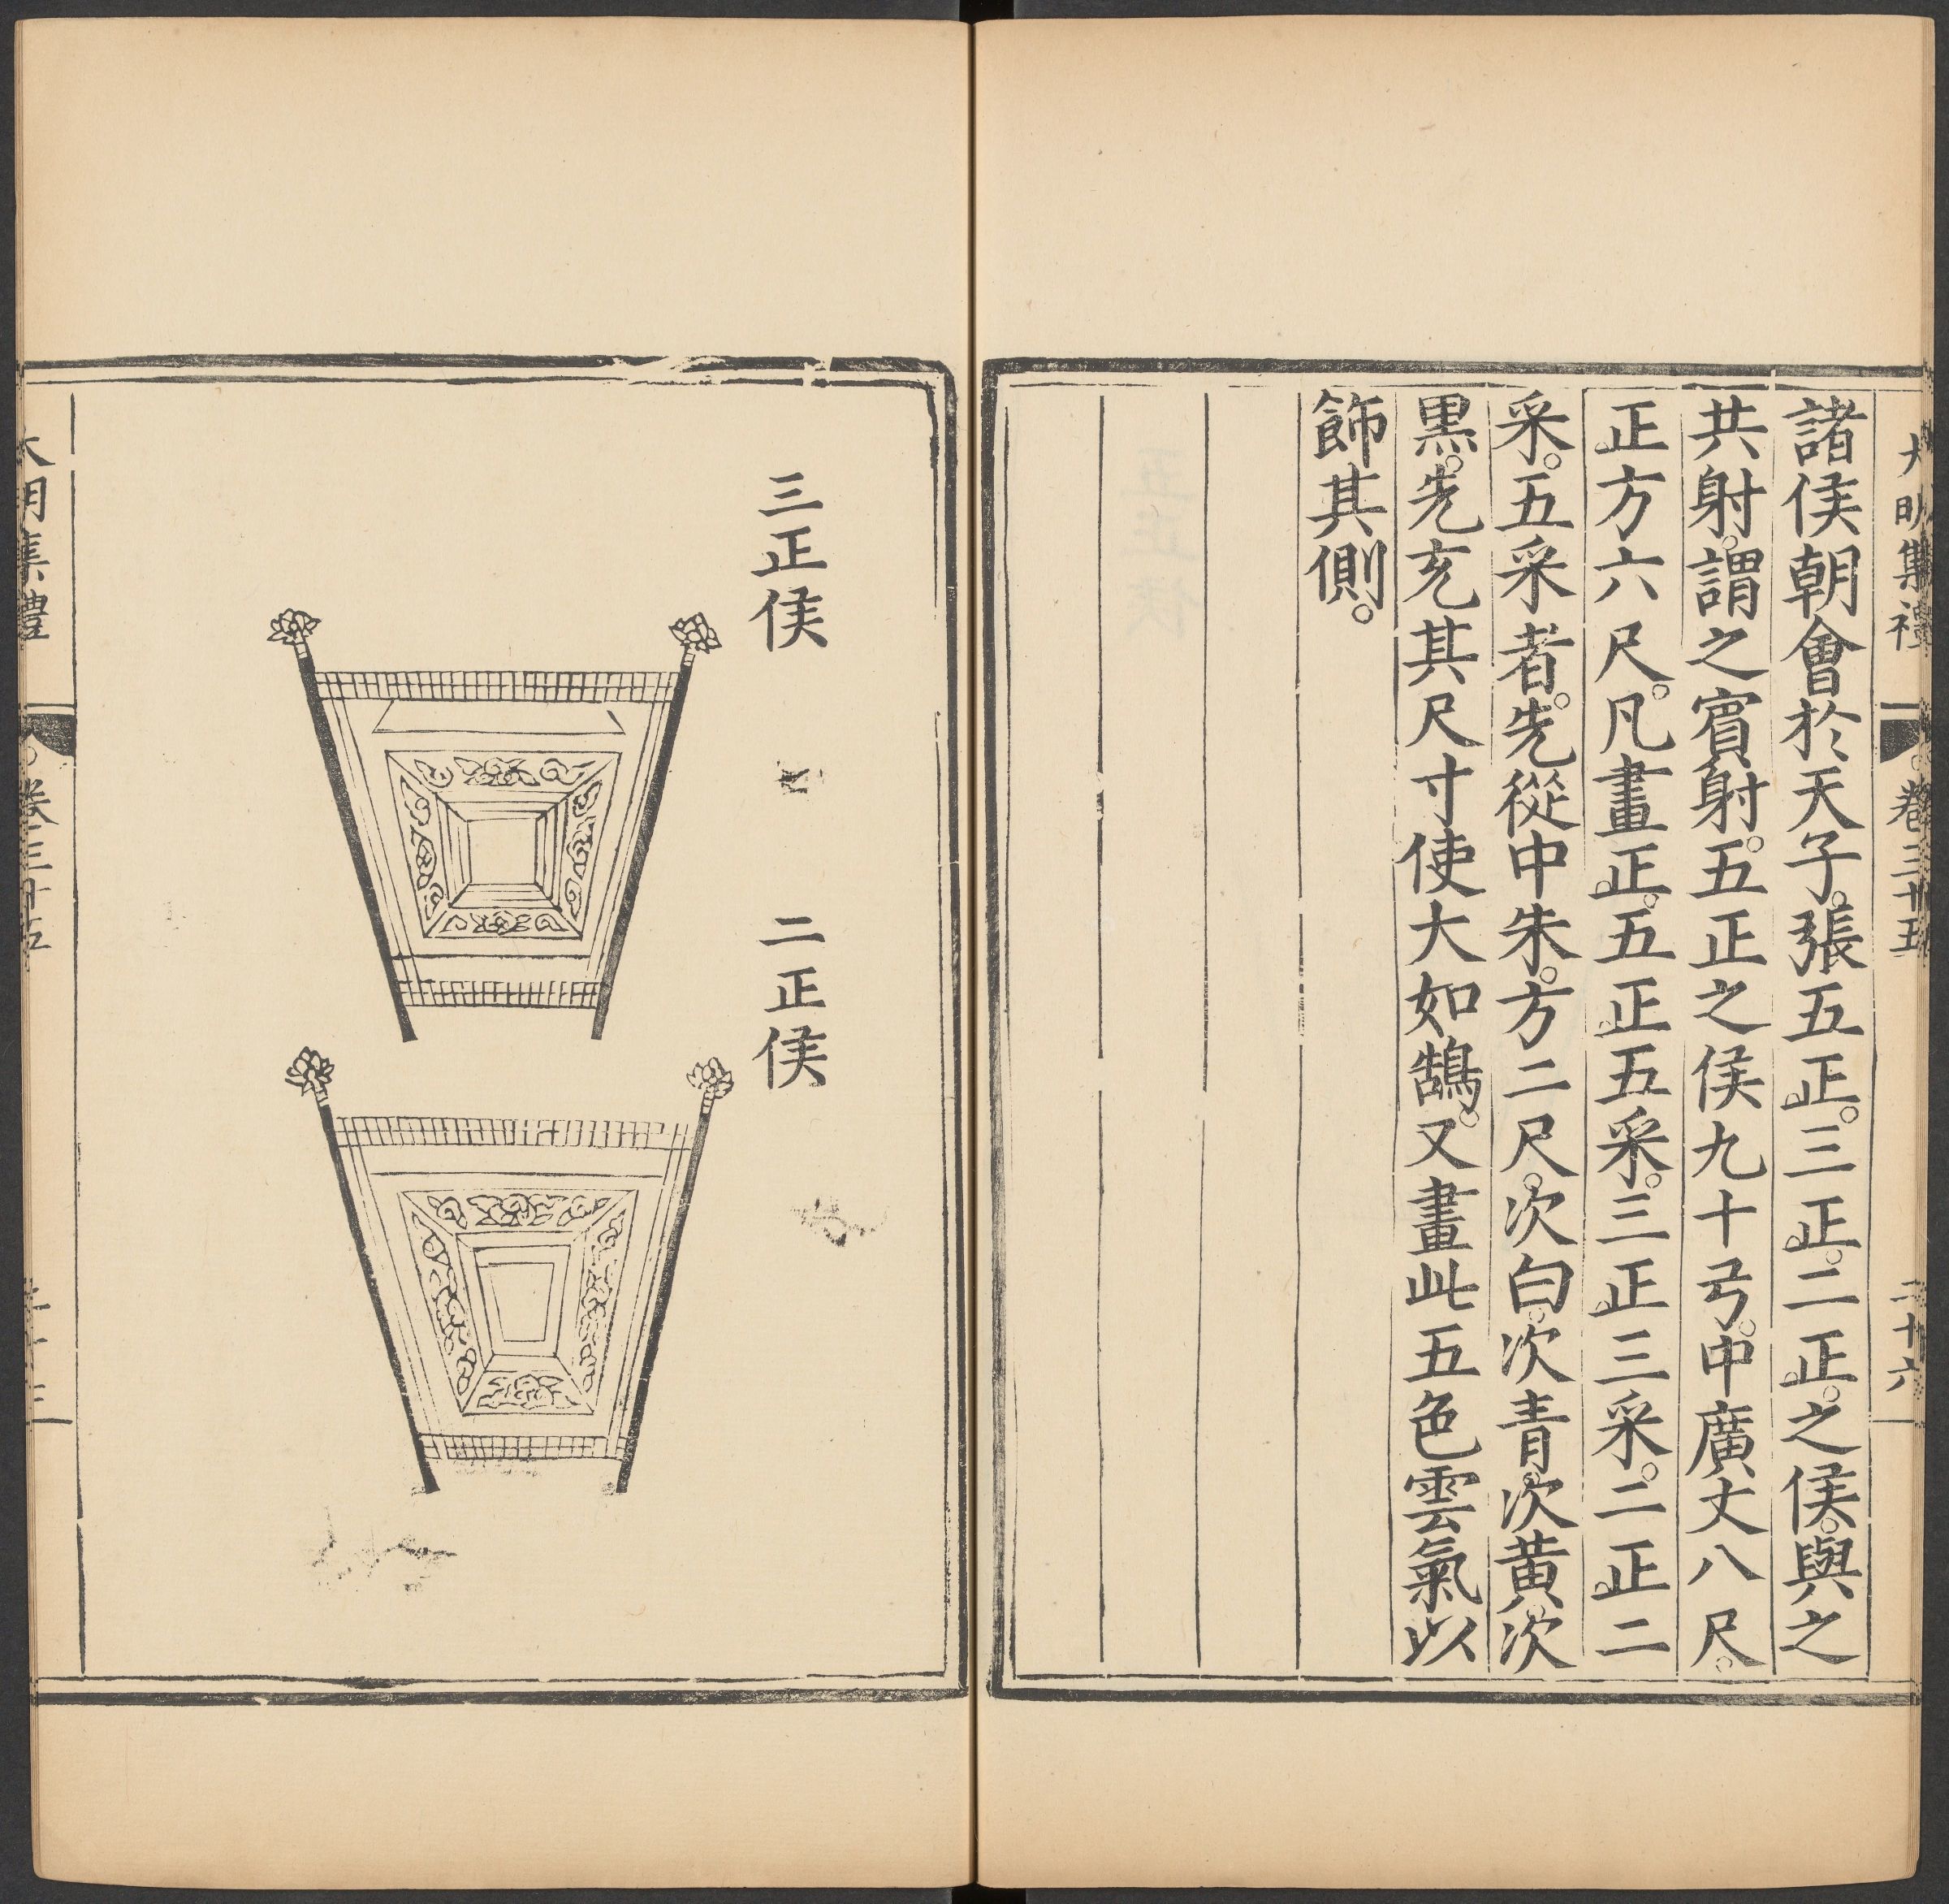 大明集禮
卷三十五
二十六
諸侯朝會於天子。張五正。三正。二正。之侯。與之
共射。謂之賓射。五正之侯九十弓。中廣丈八尺。
正方六尺。凡畫正。五正五采。三正三采。二正二
采。五采者。先從中朱。方二尺。次白。次青。次黃。次
黑。先充其尺寸使大如鵠。又畫此五色雲氣以
飾其側。
三正侯
二正侯
大明集禮
卷三十五